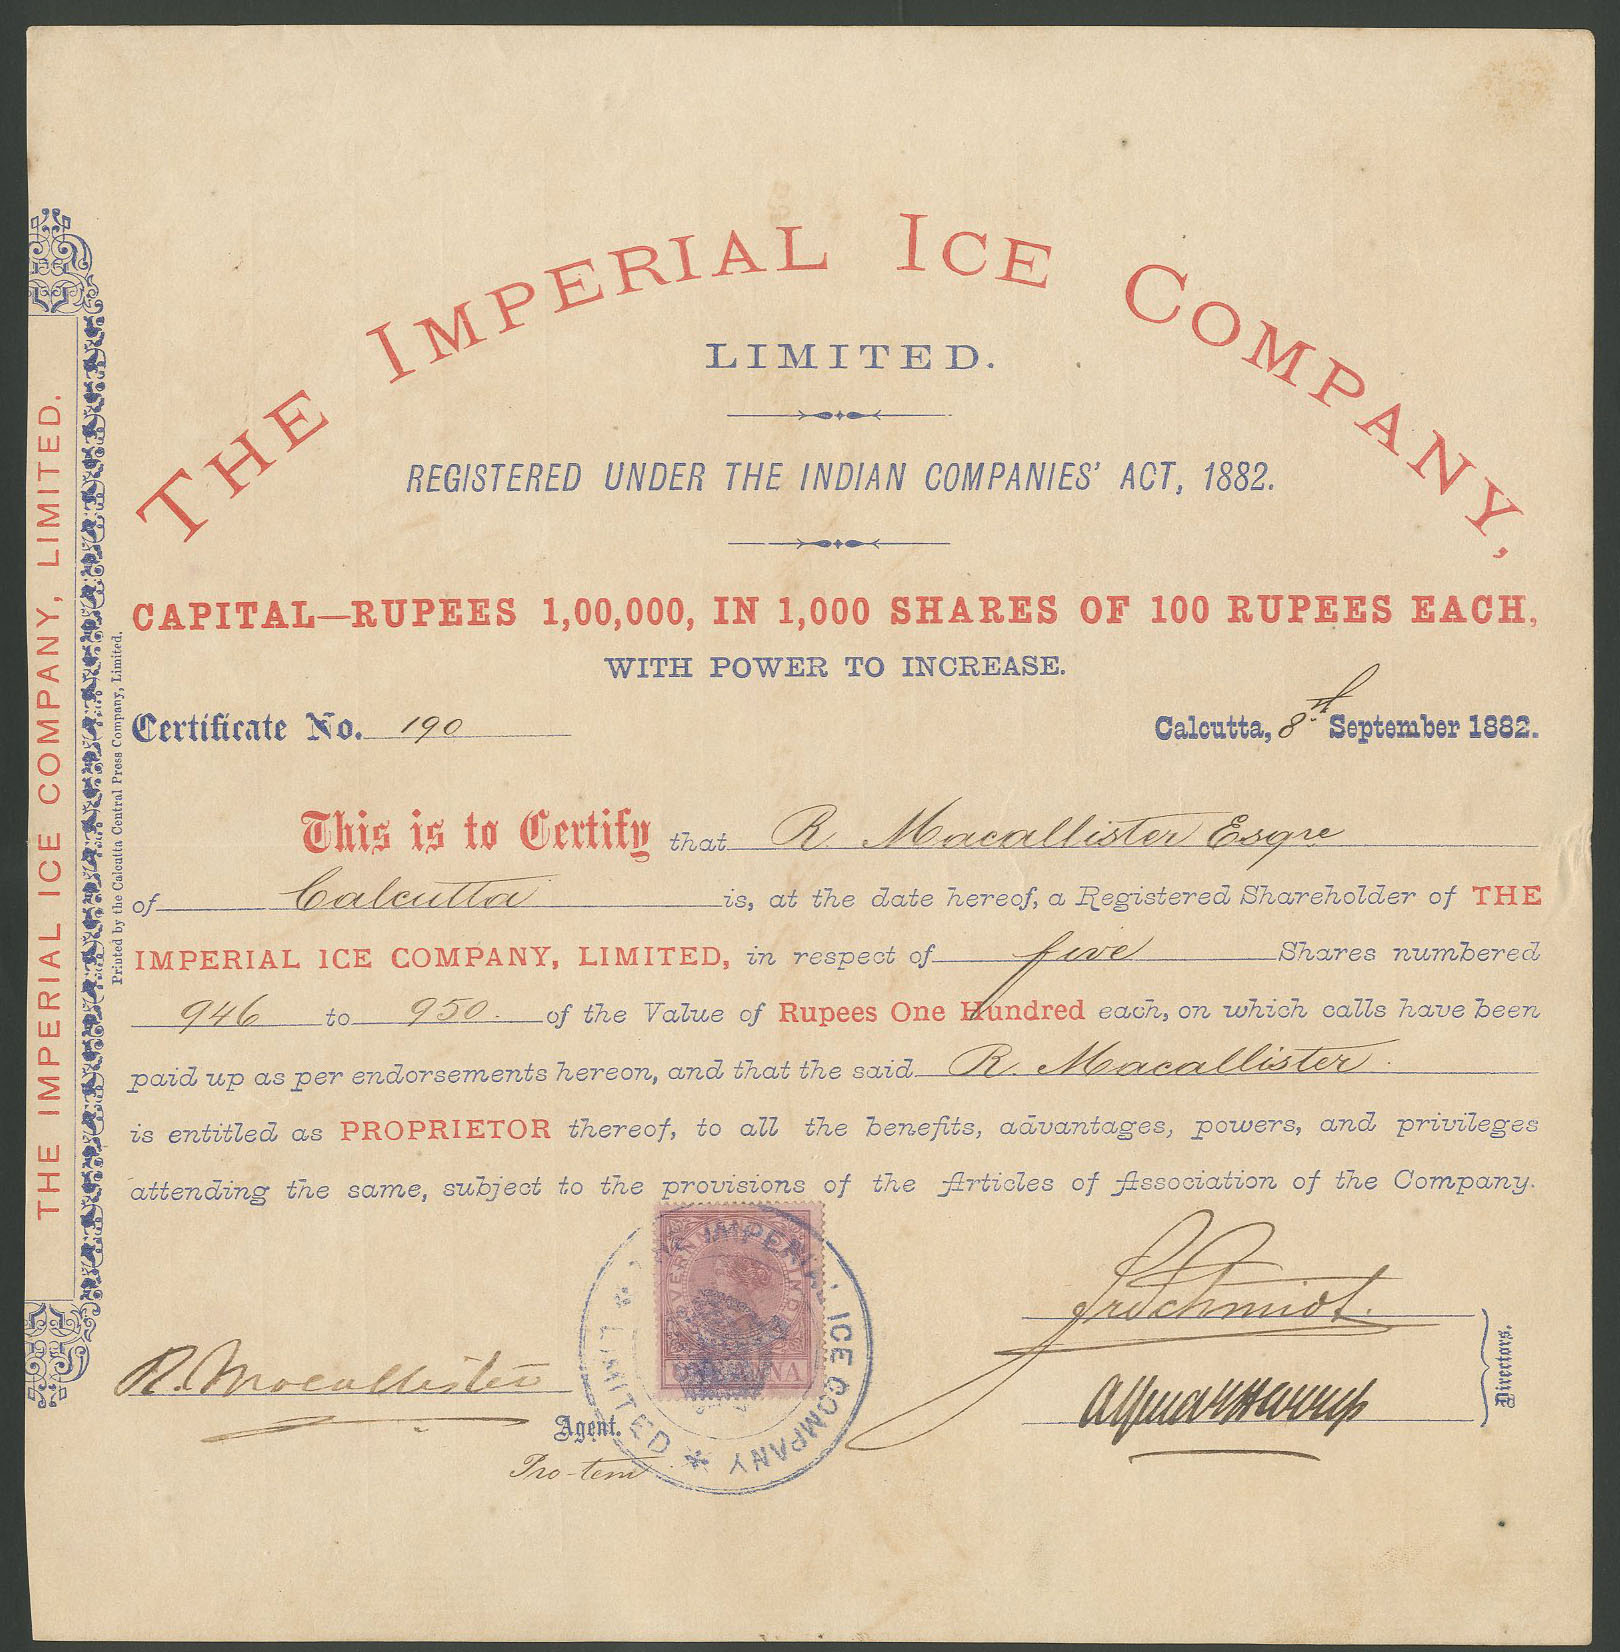 THE IMPERIAL ICE COMPANY,
LIMITED.
REGISTERED UNDER THE INDIAN COMPANIES' ACT, 1882.
CAPITAL—RUPEES 1,00,000, IN 1,000 SHARES OF 100 RUPEES EACH,
WITH POWER TO INCREASE.
Certificate No. 190
Calcutta, 8th September 1882.
This is to Certify that R. Macallister Esqre
of Calcutta is, at the date hereof, a Registered Shareholder of THE
IMPERIAL ICE COMPANY, LIMITED, in respect of five Shares numbered
946 to 950. of the Value of Rupees One Hundred each, on which calls have been
paid up as per endorsements hereon, and that the said R. Macallister
is entitled as PROPRIETOR thereof, to all the benefits, advantages, powers, and privileges
attending the same, subject to the provisions of the Articles of Association of the Company.
R. Macallister
Agent.
Pro-tem
IMPERIAL ICE COMPANY LIMITED
Schmidt.
Directors.
THE IMPERIAL ICE COMPANY, LIMITED.
Printed by the Calcutta Central Press Company, Limited.